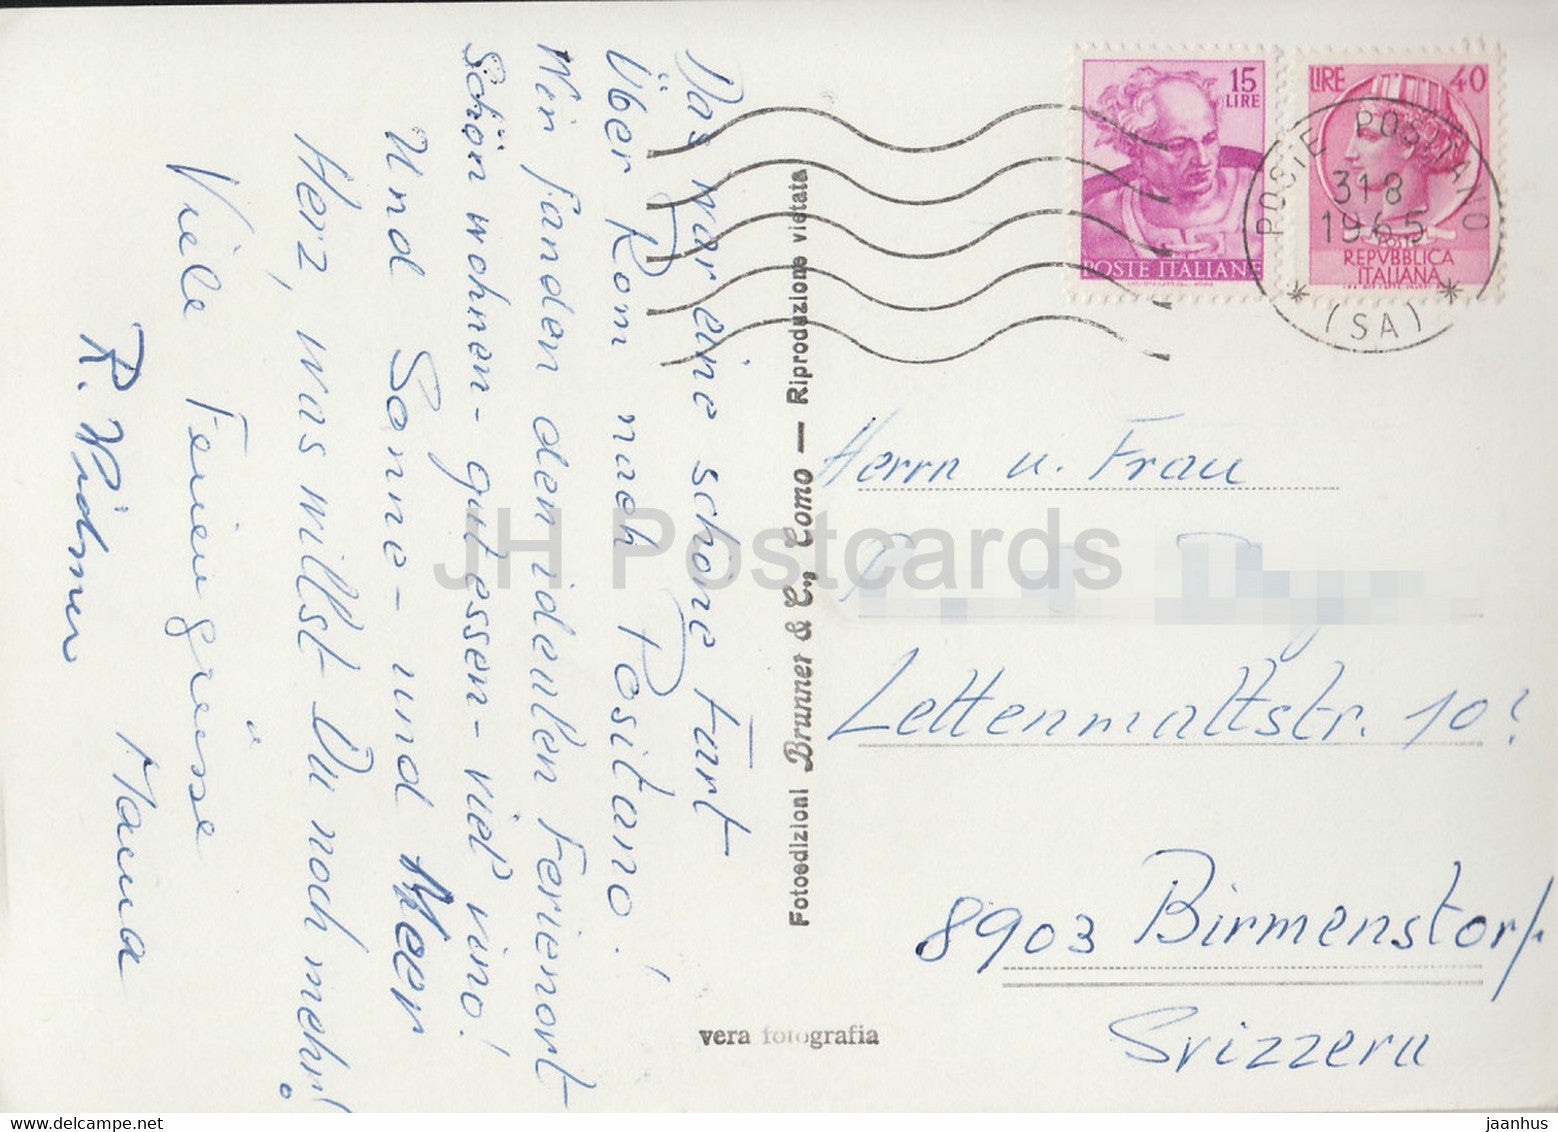 Das war eine schöne Fart
Über Rom nach Positano!
Wir fanden den idealen Ferienort
Schön wohnen- gut essen- viel vino!
Und Sonne- und Meer
Herz, was willst Du noch mehr!
Viele Feriengrüsse
R. Widmer
Fotoedizioni Brunner & C., Como — Riproduzione vietata
vera fotografia
15
LIRE
POSTE ITALIANE
LIRE 40
POSTE
REPVBBLICA
ITALIANA
POSTE POSITANO
31 8
1965
* (SA) *
Herrn u. Frau
Lettenmattstr. 10
8903 Birmenstorf
Svizzera
JH Postcards
jaanhus